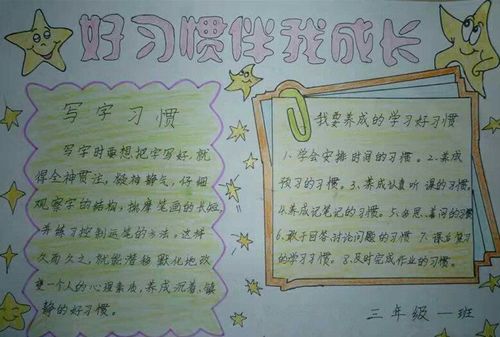 好习惯伴我成长
写字习惯
写字时要想把字写好,就
得全神贯注,凝神静气,仔细
观察字的结构,揣摩笔画的长短,
并练习控制运笔的方法。这样
久而久之,就能潜移默化地改
变一个人的心理素质,养成沉着、镇
静的好习惯。
我要养成的学习好习惯
1、学会安排时间的习惯。2、养成
预习的习惯。3、养成认真听课的习惯。
4、养成记笔记的习惯。5、多思、善问的习惯
6、敢于回答、讨论问题的习惯 7、课后复习
的学习习惯。8、及时完成作业的习惯。
三年级一班